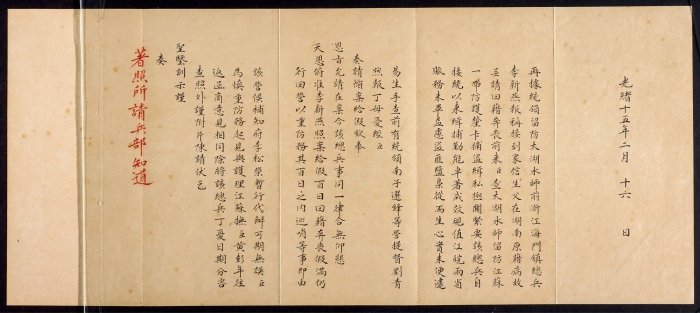 光緒十五年二月 十六 日
再據統領留防太湖水師前浙江海門鎮總兵
李新燕報稱接到家信生父在湖南原籍病故
呈請回籍奔喪前來臣查太湖水師留防江蘇
一帶防護釐卡捕盜緝私極關緊要該總兵自
接統以來緝捕勤能卓著成效現值江皖兩省
賑務未畢盜慮匪盬梟從而生心實未便遽
易生手查前有統領南字選鋒等營提督劉青
煦報丁母憂經臣
奏請循案給假欽奉
恩旨允請在案今該總兵事同一律合無仰懇
天恩俯准李新燕照案給假百日回籍奔喪假滿仍
行回營以重防務其百日之內巡哨等事即由
該營候補知府李松榮暫行代辦可期無誤臣
為慎重防務起見與護理江蘇撫臣黃彭年往
返函商意見相同除將該總兵丁憂日期分咨
查照外謹附片陳請伏乞
聖鑒訓示謹
奏
著照所請兵部知道